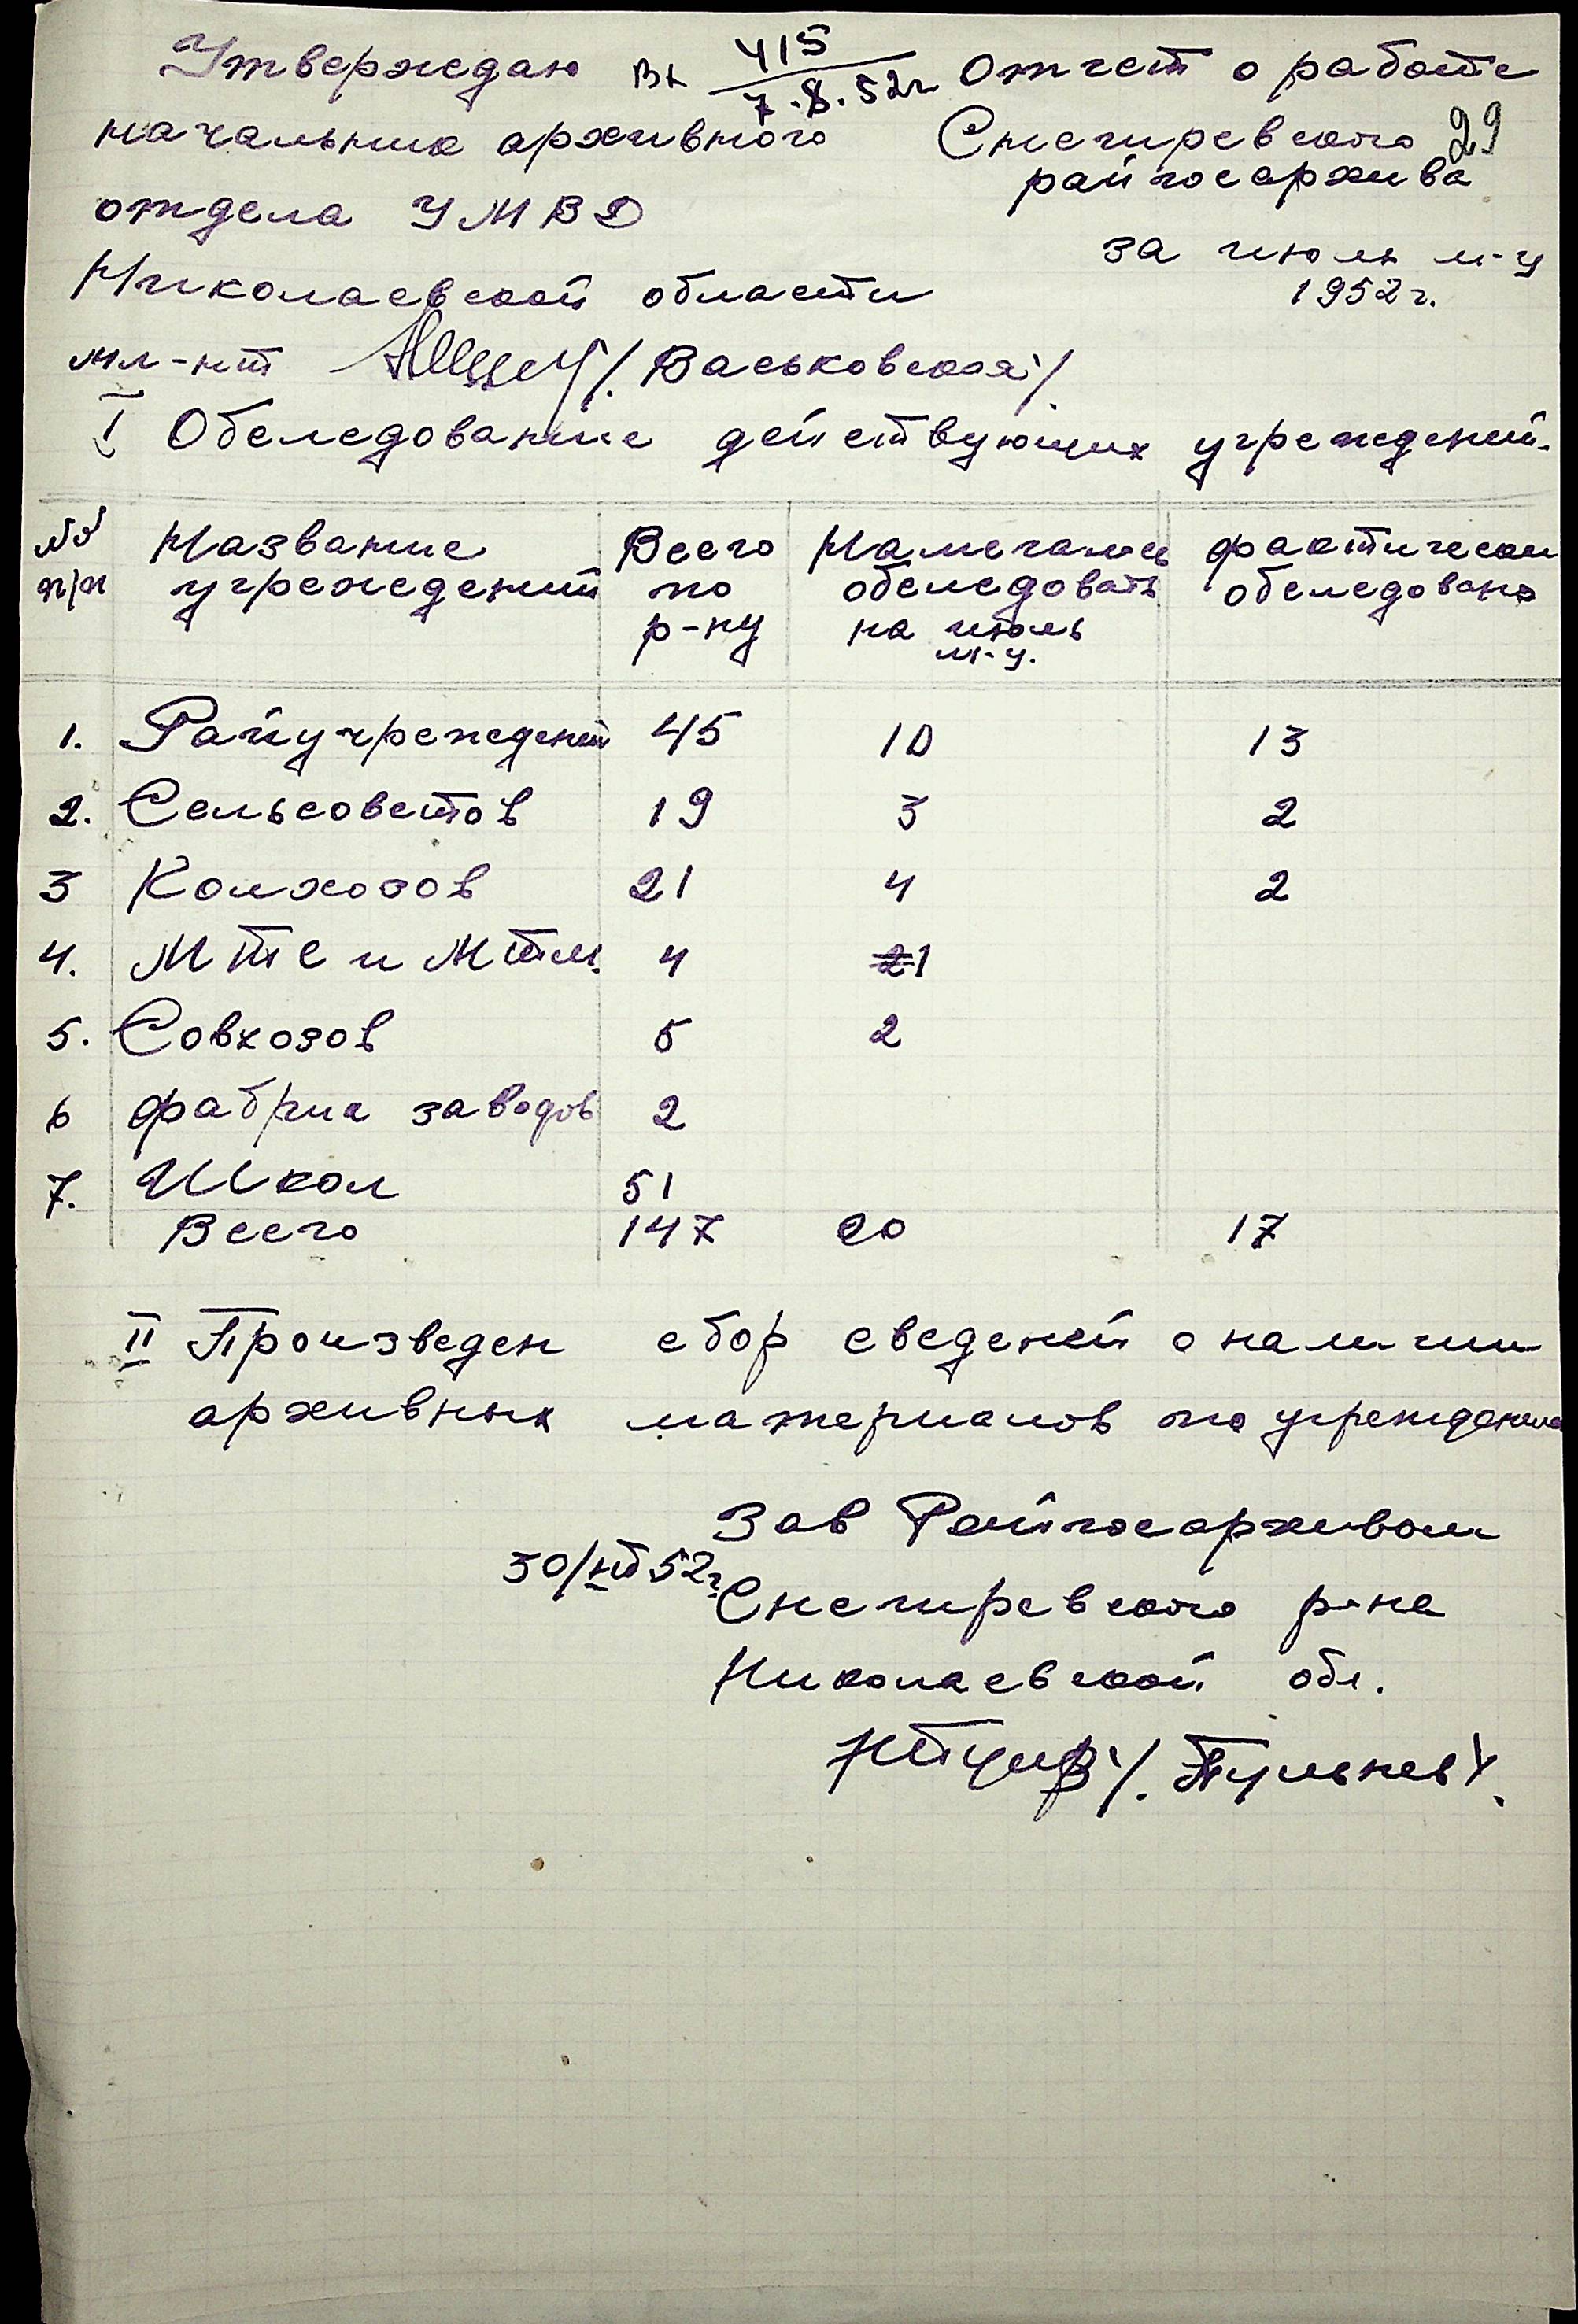 Утверждаю
начальник архивного
отдела УМВД
Николаевской области
мл-нт /. Васьковская /.
Вх 415
7.8.52г
Отчет о работе
Снегиревского
райгосархива
за июль м-ц
1952 г.
29
I Обследование действующих учреждений.
№№ п/п | Название учреждений | Всего по р-ну | Намечалось обследовать на июль м-ц. | фактически обследовано
1. Райучреждений 45 10 13
2. Сельсоветов 19 3 2
3 Колхозов 21 4 2
4. МТС и Мтм. 4 1
5. Совхозов 5 2
6 фабрик заводов 2
7. Школ 51
Всего 147 20 17
II Произведен сбор сведений о наличии
архивных материалов по учреждениям
Зав Райгосархивом
30/VII 52г.
Снегиревского р-на
Николаевской обл.
/. Пульнев /.